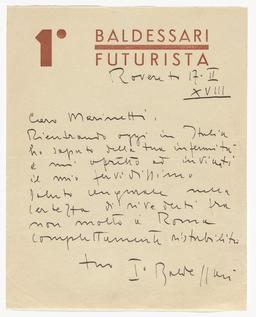 1° BALDESSARI
FUTURISTA
Rovereto 17-II
XVIII
Caro Marinetti,
Rientrando oggi in Italia
ho saputo della tua infermità
e mi affretto ad inviarti
il mio fervidissimo
saluto augurale nella
certezza di rivederti fra
non molto a Roma
completamente ristabilito
tuo I° Baldessari